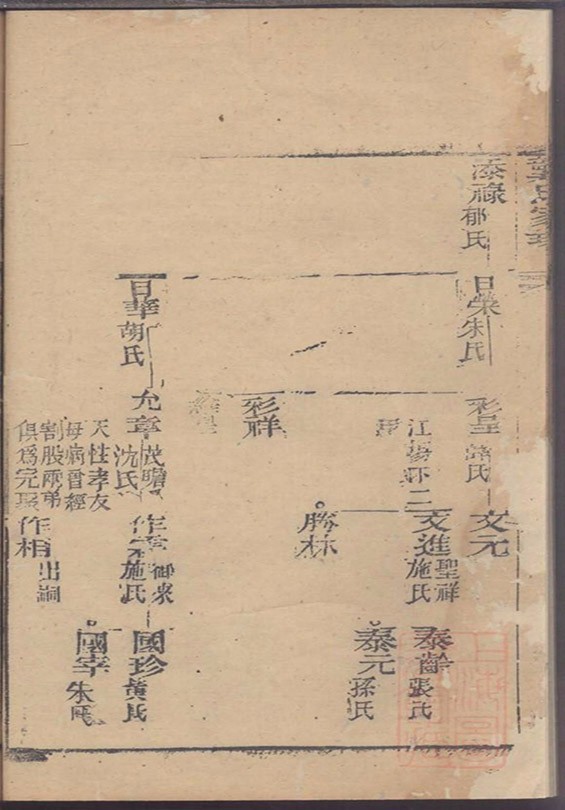 添祿
郁氏
日榮
朱氏
彩呈
氏
文元
江
二
文進
聖祥
施氏
泰齡
張氏
泰元
孫氏
彩祥
勝林
日華
胡氏
允章
茂瞻
沈氏
天性孝友
母病曾經
割股兩弟
俱爲完聚
作
御衆
施氏
國珍
黃氏
國宰
朱氏
作相
出嗣